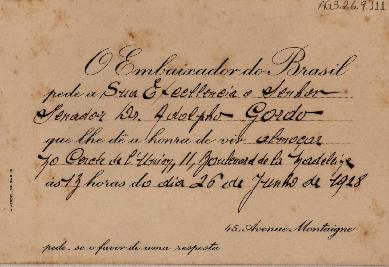 AG3.26.9.111
O Embaixador do Brasil
pede a Sua Excellencia o Senhor
Senador Dr. Adolpho Gordo
que lhe dê a honra de vir almoçar
no Cercle de l'Union, 11, Boulevard de la Madeleine
às 13 horas do dia 26 de Junho de 1928
45, Avenue Montaigne
pede-se o favor de uma resposta